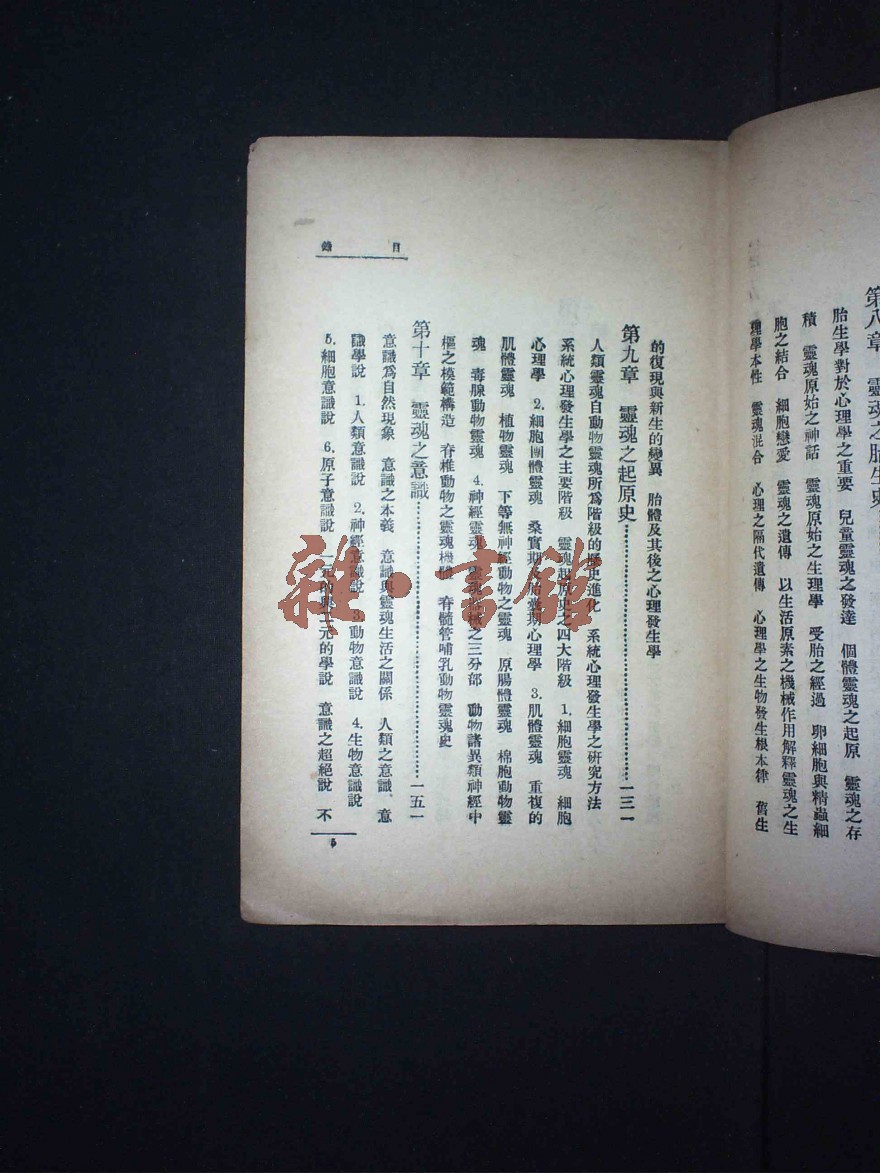 第八章　靈魂之胎生史
胎生學對於心理學之重要　兒童靈魂之發達　個體靈魂之起原　靈魂之存
積　靈魂原始之神話　靈魂原始之生理學　受胎之經過　卵細胞與精蟲細
胞之結合　細胞戀愛　靈魂之遺傳　以生活原素之機械作用解釋靈魂之生
理學本性　靈魂混合　心理之隔代遺傳　心理學之生物發生根本律　舊生
目錄
的復現與新生的變異　胎體及其後之心理發生學
第九章　靈魂之起原史……………………一三一
人類靈魂自動物靈魂所為階級的歷史進化　系統心理發生學之研究方法
系統心理發生學之主要階級　靈魂起原史之四大階級　1.細胞靈魂　細胞
心理學　2.細胞團體靈魂　桑實期及胎囊期心理學　3.肌體靈魂　重複的
肌體靈魂　植物靈魂　下等無神經動物之靈魂　原腸體靈魂　棉胞動物靈
魂　毒腺動物靈魂　4.神經靈魂　靈魂機械之三分部　動物諸異類神經中
樞之模範構造　脊椎動物之靈魂機體　脊髓管哺乳動物靈魂史
第十章　靈魂之意識……………………一五一
意識為自然現象　意識之本義　意識與靈魂生活之關係　人類之意識、意
識學說　1.人類意識說　2.神經意識說　3.動物意識說　4.生物意識說
5.細胞意識說　6.原子意識說　一元的與二元的學說　意識之超絕說　不
5
雜·書館